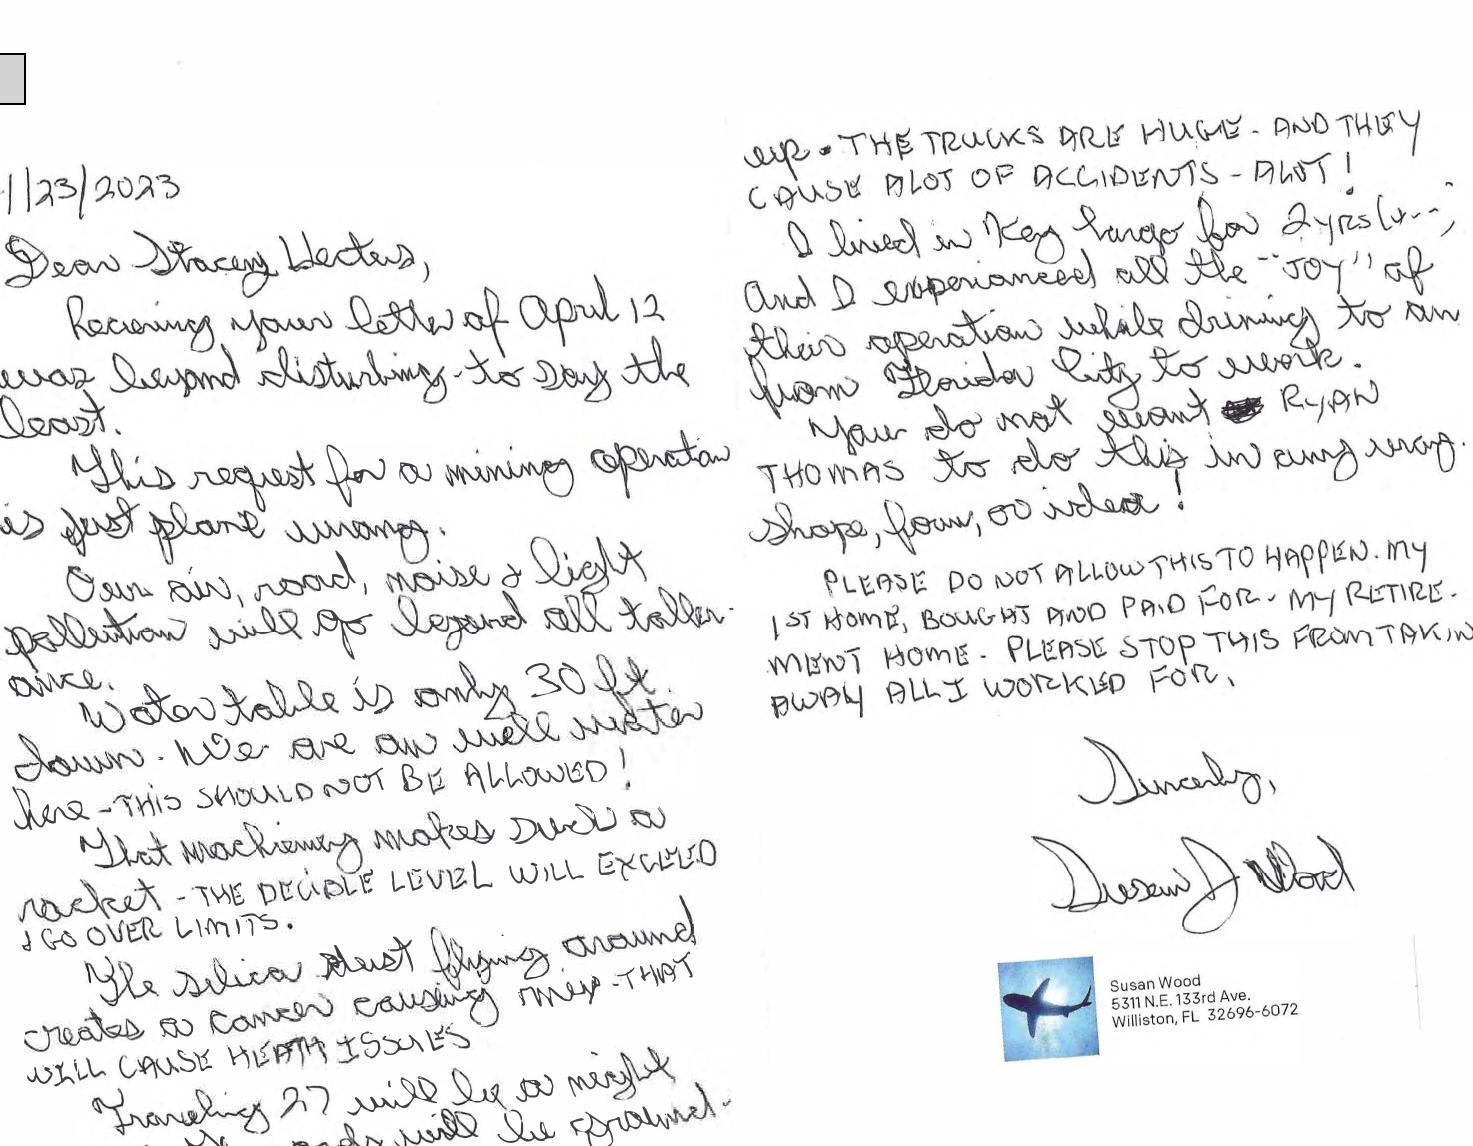 1/23/2023
Dear Stacey Hectus,
Recieving your letter of April 12
was beyond disturbing - to say the
least.
This request for a mining operation
is just plane wrong.
Our air, road, noise & light
pollution will go beyond all toller-
ance.
Water table is only 30 ft.
down. We are on well water
here - THIS SHOULD NOT BE ALLOWED!
That machienery makes such a
racket - THE DECIBLE LEVEL WILL EXCEED
& GO OVER LIMITS.
The silica dust flying around
creates a cancer causing mix - THAT
WILL CAUSE HEATH ISSUES
Traveling 27 will be a night
will be ground-
up. THE TRUCKS ARE HUGE - AND THEY
CAUSE ALOT OF ACCIDENTS - ALOT!
I lived in Key Largo for 2 YRS
and I experianced all the "JOY" of
their operation while driving to an
from Florida City to work.
You do not want RYAN
THOMAS to do this in any way.
shape, form, or idea!
PLEASE DO NOT ALLOW THIS TO HAPPEN. MY
1ST HOME, BOUGHT AND PAID FOR - MY RETIRE-
MENT HOME. PLEASE STOP THIS FROM TAKIN
AWAY ALL I WORKED FOR.
Sincerly,
Susan J Wood
Susan Wood
5311 N.E. 133rd Ave.
Williston, FL 32696-6072